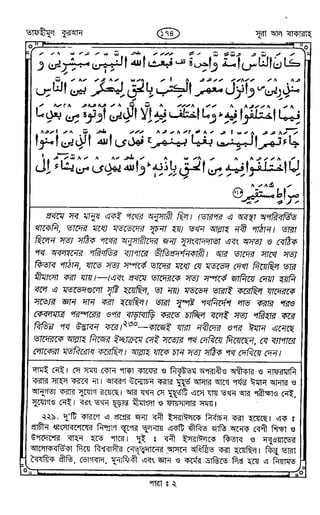 তাফহীমুল কুরআন
১৭৪
সূরা আল বাকারাহ
كَانَ النَّاسُ أُمَّةً وَّاحِدَةً فَبَعَثَ اللهُ النَّبِيّٖنَ مُبَشِّرِيْنَ وَ
مُنْذِرِيْنَ وَأَنْزَلَ مَعَهُمُ الْكِتٰبَ بِالْحَقِّ لِيَحْكُمَ بَيْنَ النَّاسِ
فِيْمَا اخْتَلَفُوْا فِيْهِ وَمَا اخْتَلَفَ فِيْهِ إِلَّا الَّذِيْنَ أُوْتُوْهُ مِنْ بَعْدِ مَا
جَاءَتْهُمُ الْبَيِّنٰتُ بَغْيًا بَيْنَهُمْ فَهَدَى اللهُ الَّذِيْنَ اٰمَنُوْا
لِمَا اخْتَلَفُوْا فِيْهِ مِنَ الْحَقِّ بِإِذْنِهٖ وَاللهُ يَهْدِيْ مَنْ يَّشَاءُ إِلٰى
صِرَاطٍ مُّسْتَقِيْمٍ
প্রথমে সব মানুষ একই পথের অনুসারী ছিল। (তারপর এ অবস্থা অপরিবর্তিত
থাকেনি, তাদের মধ্যে মতভেদের সূচনা হয়) তখন আল্লাহ নবী পাঠান। তারা
ছিলেন সত্য সঠিক পথের অনুসারীদের জন্য সুসংবাদদাতা এবং অসত্য ও বেঠিক
পথ অবলম্বনের পরিণতির ব্যাপারে ভীতিপ্রদর্শনকারী। আর তাদের সাথে সত্য
কিতাব পাঠান, যাতে সত্য সম্পর্কে তাদের মধ্যে যে মতভেদ দেখা দিয়েছিল তার
মীমাংসা করা যায়।—(এবং প্রথমে তাদেরকে সত্য সম্পর্কে জানিয়ে দেয়া হয়নি
বলে এ মতভেদগুলো সৃষ্টি হয়েছিল, তা নয়) মতভেদ তারাই করেছিল যাদেরকে
সত্যের জ্ঞান দান করা হয়েছিল। তারা সুস্পষ্ট পথনির্দেশ লাভ করার পরও
কেবলমাত্র পরস্পরের ওপর বাড়াবাড়ি করতে চাচ্ছিল বলেই সত্য পরিহার করে
বিভিন্ন পথ উদ্ভাবন করে।২৩০—কাজেই যারা নবীদের ওপর ঈমান এনেছে
তাদেরকে আল্লাহ নিজের ইচ্ছাক্রমে সেই সত্যের পথ দেখিয়ে দিয়েছেন, যে ব্যাপারে
লোকেরা মতবিরোধ করেছিল। আল্লাহ যাকে চান সত্য সঠিক পথ দেখিয়ে দেন।
দামই নেই। সে সময় কোন পাক্কা কাফের ও নিকৃষ্টতম অপরাধীও অস্বীকার ও নাফরমানি
করার সাহস করবে না। আবরণ উন্মোচন করার মুহূর্ত আসার আগে পর্যন্ত ঈমান আনার ও
আনুগত্য করার সুযোগ রয়েছে। আর যখন সে মুহূর্তটি এসে যায় তখন আর পরীক্ষাও নেই,
সুযোগও নেই। বরং তখন চূড়ান্ত মীমাংসা ও ফায়সালার সময়।
২২৯. দু'টি কারণে এ প্রশ্নের জন্য বনী ইসরাঈলকে নির্বাচন করা হয়েছে। এক ঃ
প্রাচীন ধ্বংসাবশেষের নিষ্প্রাণ স্তূপের তুলনায় একটি জীবিত জাতি অনেক বেশী শিক্ষা ও
উপদেশের বাহন হতে পারে। দুই ঃ বনী ইসরাঈলকে কিতাব ও নবুওয়াতের
আলোকবর্তিকা দিয়ে বিশ্ববাসীর নেতৃত্বদানের আসনে অধিষ্ঠিত করা হয়েছিল। কিন্তু তারা
বৈষয়িক প্রীতি, ভোগবাদ, মুনাফিকী এবং জ্ঞান ও কর্মের ভ্রান্তিতে লিপ্ত হয়ে এ নিয়ামত
পারা ঃ ২